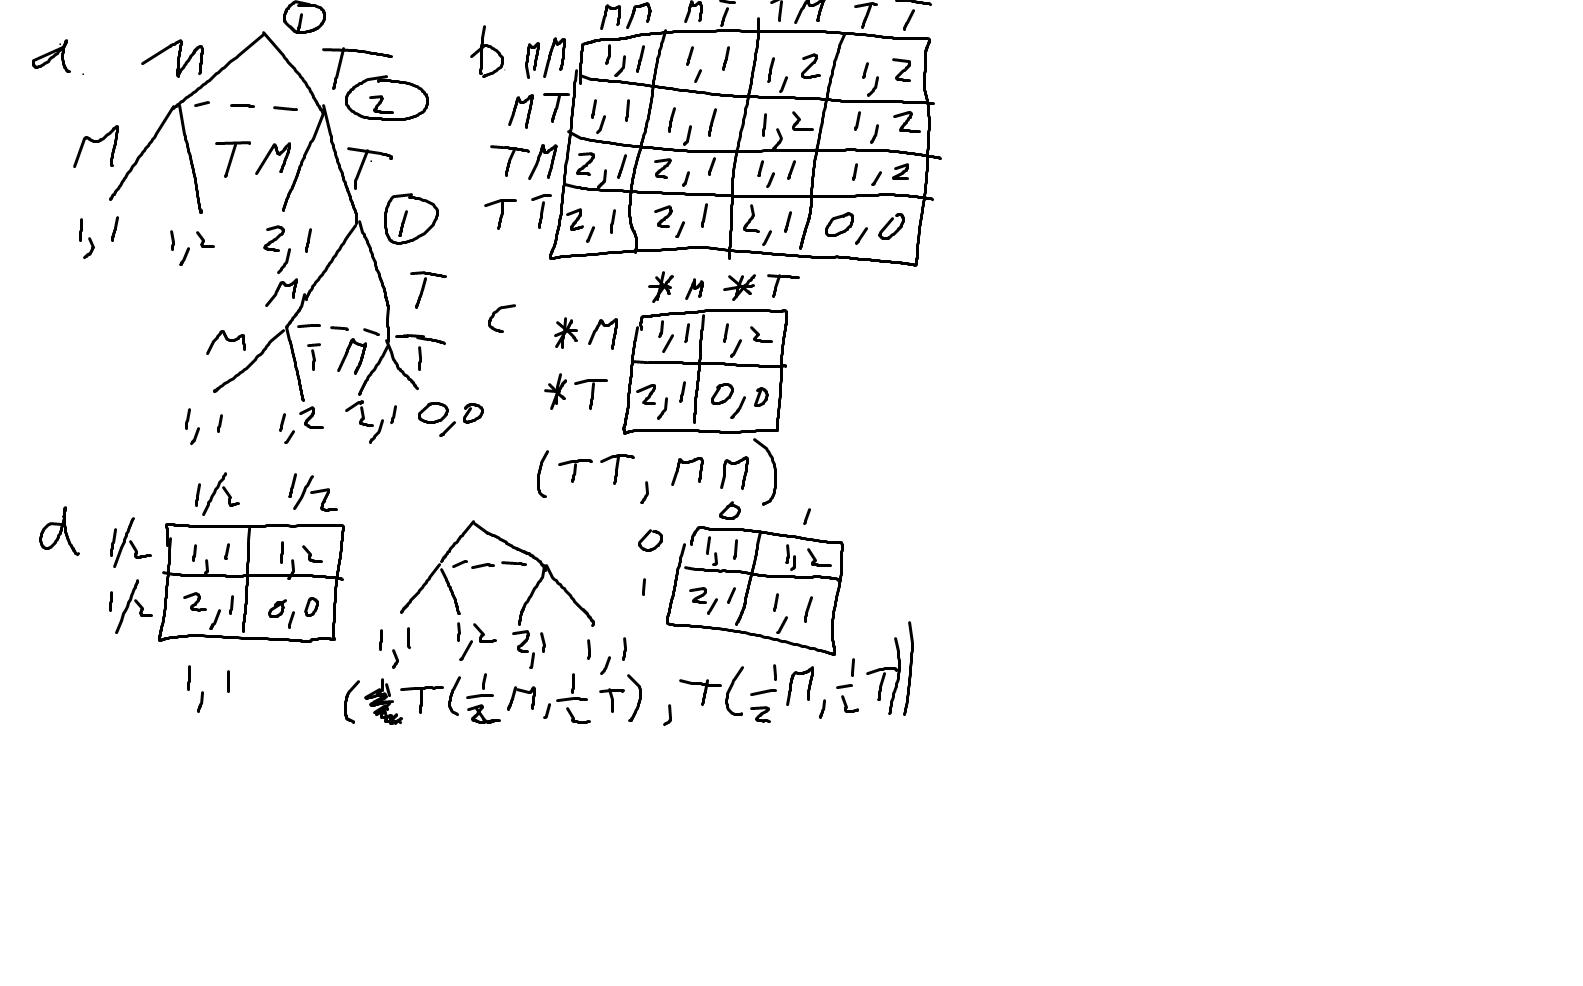 a.
1
M T
2
M T M T
1,1 1,2 2,1
1
M T
M T M T
1,1 1,2 2,1 0,0
b
MM MT TM TT
MM 1,1 1,1 1,2 1,2
MT 1,1 1,1 1,2 1,2
TM 2,1 2,1 1,1 1,2
TT 2,1 2,1 2,1 0,0
c
*M *T
*M 1,1 1,2
*T 2,1 0,0
(TT, MM)
d
1/2 1/2
1/2 1,1 1,2
1/2 2,1 0,0
1,1
1,1 1,2 2,1 1,1
0 1
0 1,1 1,2
1 2,1 1,1
(T(1/2 M, 1/2 T), T(1/2 M, 1/2 T))